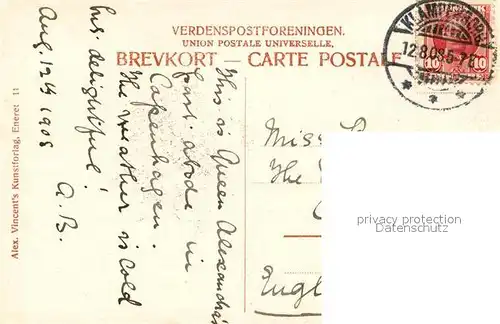 VERDENSPOSTFORENINGEN.
UNION POSTALE UNIVERSELLE.
BREVKORT — CARTE POSTALE
KLAMPENBORG
12.8.08. 5-7 E.
10 10
This is Queen Alexandra's
part abode in
Copenhagen.
The weather is cold
but delightful!
A.B.
Aug. 12th 1908
Miss
The
Engl
Alex. Vincent's Kunstforlag, Eneret 11
privacy protection
Datenschutz